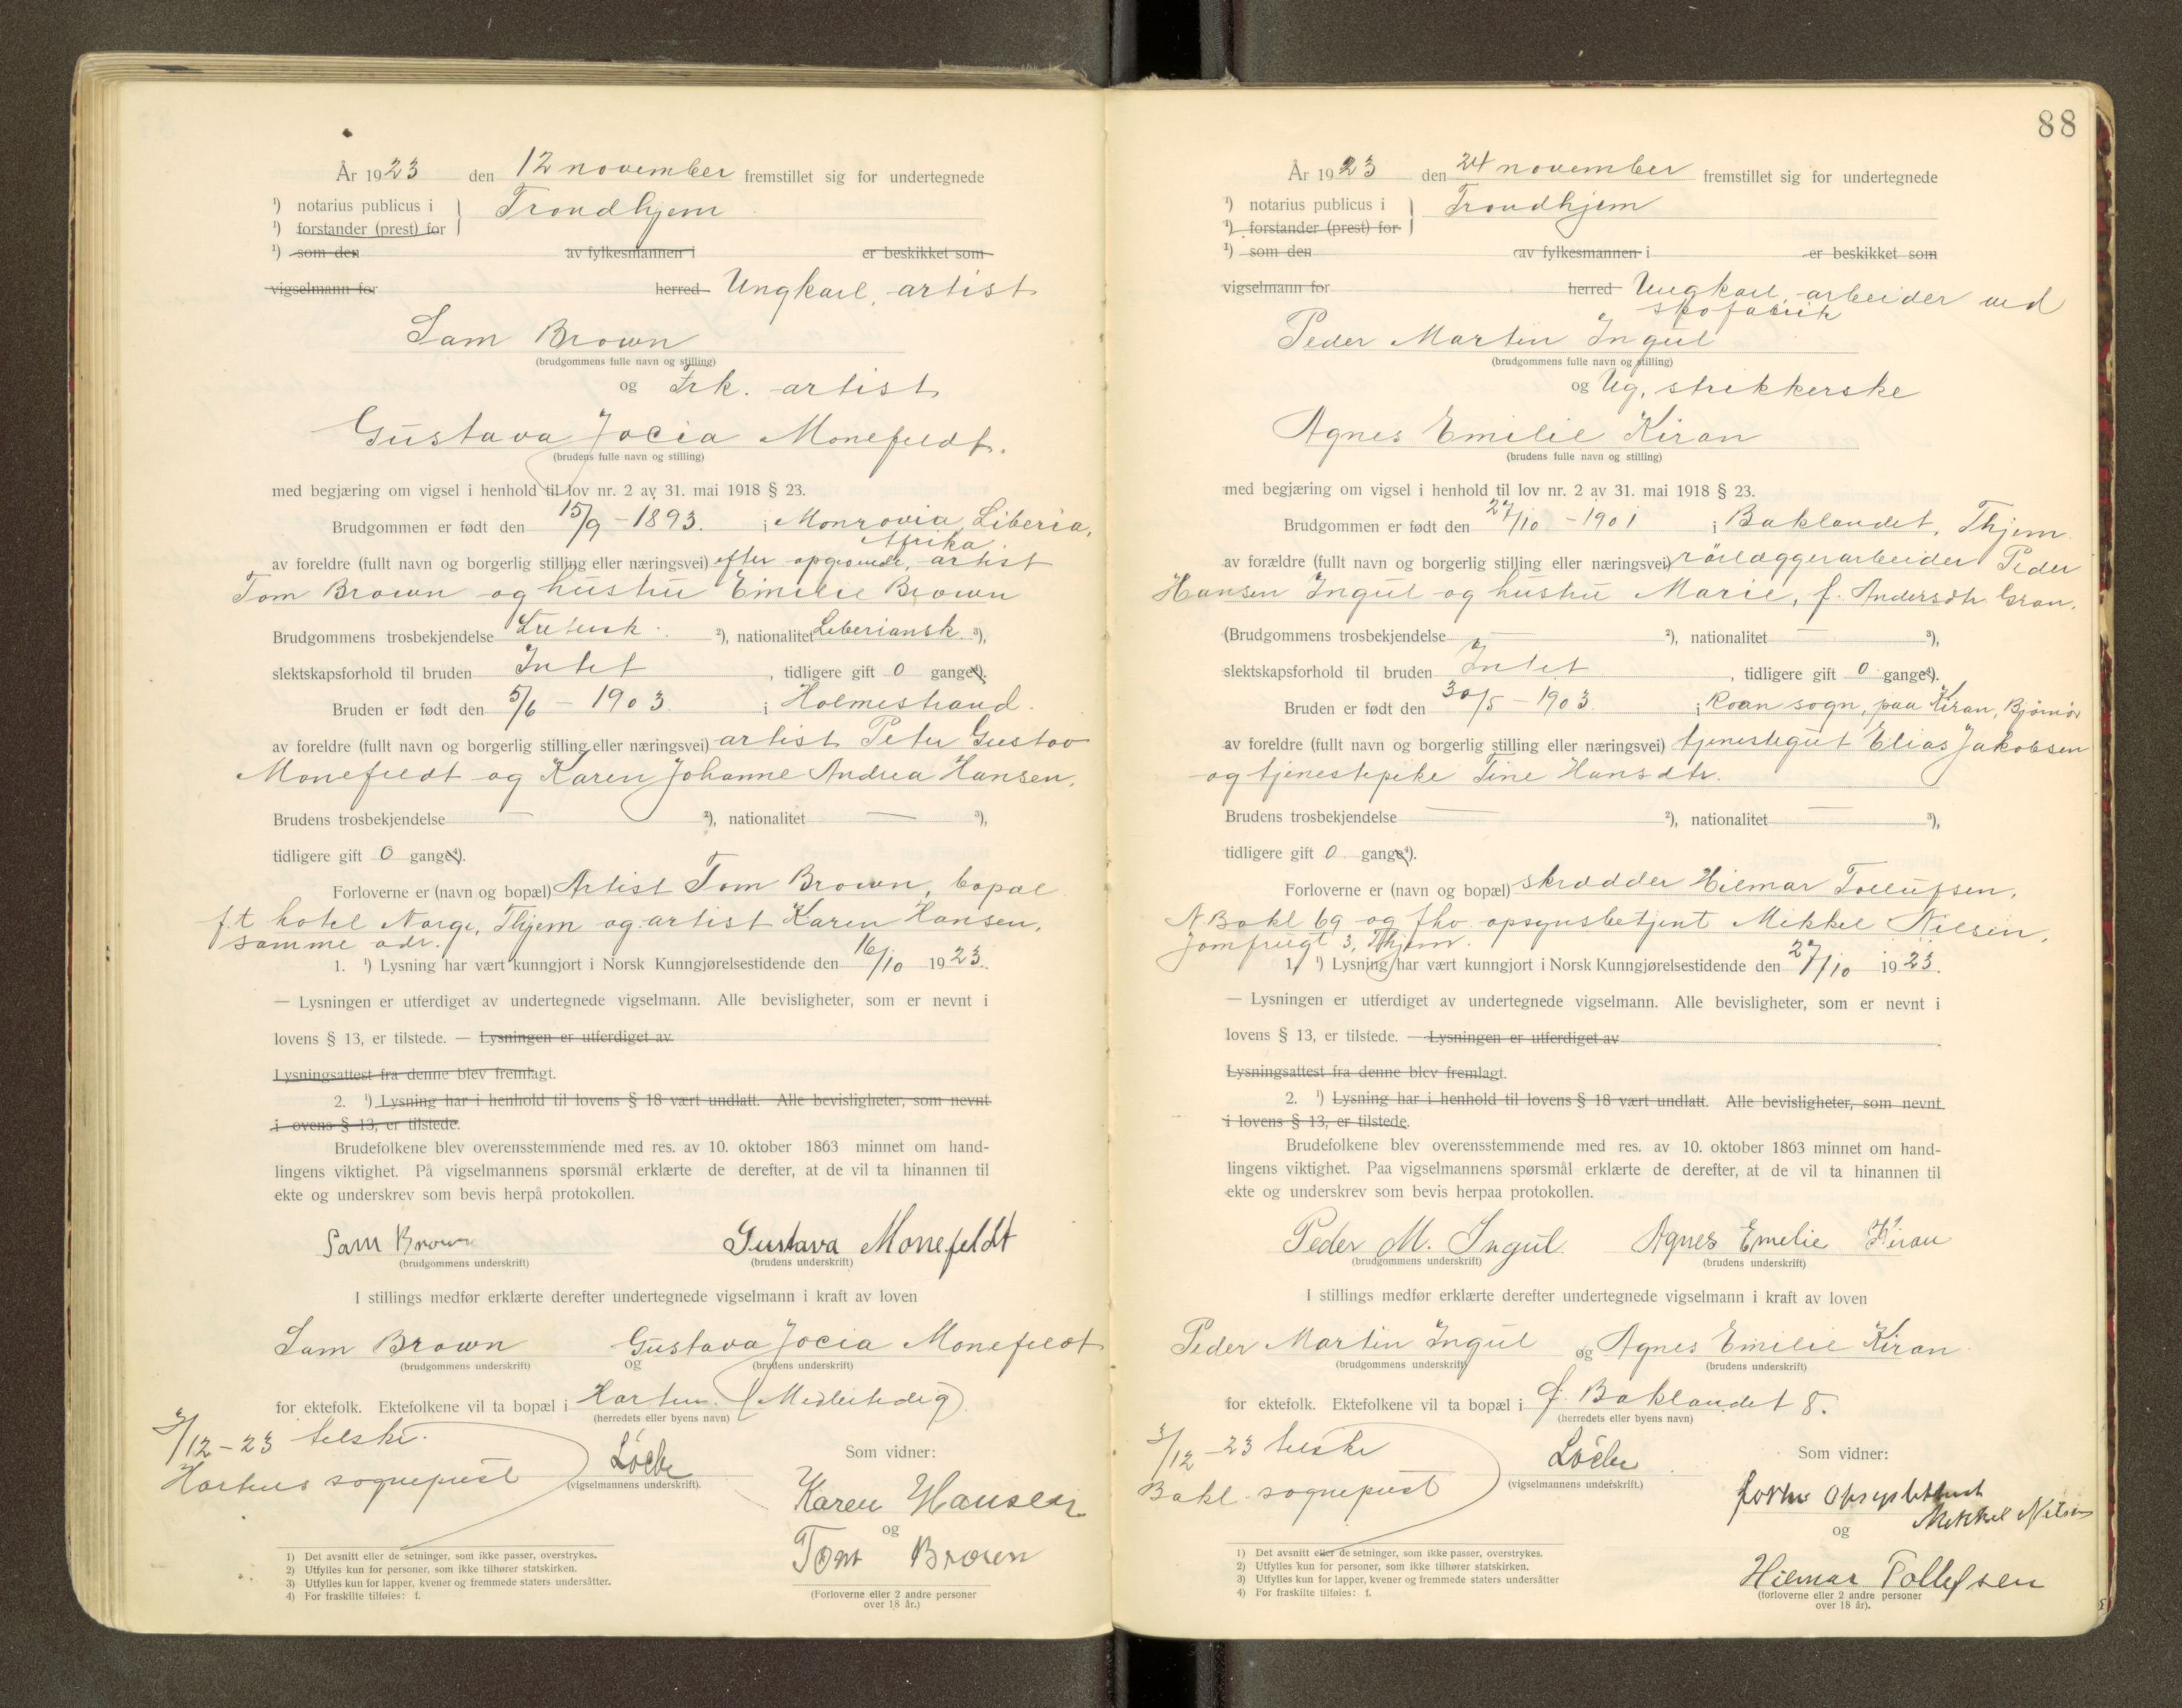 År 1923 den 12 november fremstillet sig for undertegnede
¹) notarius publicus i } Trondhjem
¹) forstander (prest) for
¹) som den av fylkesmannen i er beskikket som
vigselmann for herred Ungkarl, artist
Sam Brown
(brudgommens fulle navn og stilling)
og Frk. artist
Gustava Jocia Monefeldt.
(brudens fulle navn og stilling)
med begjæring om vigsel i henhold til lov nr. 2 av 31. mai 1918 § 23.
Brudgommen er født den 15/9 - 1893. i Monrovia, Liberia,
Afrika
av foreldre (fullt navn og borgerlig stilling eller næringsvei) efter opgivende, artist
Tom Brown og hustru Emilie Brown
Brudgommens trosbekjendelse Luthersk ²), nationalitet Liberiansk ³),
slektskapsforhold til bruden Intet, tidligere gift 0 gange⁴).
Bruden er født den 5/6 - 1903. i Holmestrand.
av foreldre (fullt navn og borgerlig stilling eller næringsvei) artist Peter Gustav
Monefeldt og Karen Johanne Andrea Hansen.
Brudens trosbekjendelse — ²), nationalitet — ³),
tidligere gift 0 gange⁴).
Forloverne er (navn og bopæl) Artist Tom Brown, bopæl
f.t. hotel Norge, Thjem og artist Karen Hansen,
samme adr.
1. ¹) Lysning har vært kunngjort i Norsk Kunngjørelsestidende den 16/10 1923.
— Lysningen er utferdiget av undertegnede vigselmann. Alle bevisligheter, som er nevnt i
lovens § 13, er tilstede. — Lysningen er utferdiget av
Lysningsattest fra denne blev fremlagt.
2. ¹) Lysning har i henhold til lovens § 18 vært undlatt. Alle bevisligheter, som nevnt
i ovens § 13, er tilstede.
Brudefolkene blev overensstemmende med res. av 10. oktober 1863 minnet om hand-
lingens viktighet. På vigselmannens spørsmål erklærte de derefter, at de vil ta hinannen til
ekte og underskrev som bevis herpå protokollen.
Sam Brown Gustava Monefeldt
(brudgommens underskrift) (brudens underskrift)
I stillings medfør erklærte derefter undertegnede vigselmann i kraft av loven
Sam Brown og Gustava Jocia Monefeldt
(brudgommens underskrift) (brudens underskrift)
for ektefolk. Ektefolkene vil ta bopæl i
(herredets eller byens navn)
/12 - 23
sogneprest
(vigselmannens underskrift).
Som vidner:
Karen Hansen
og
Tom Brown
(Forloverne eller 2 andre personer
over 18 år.)
1) Det avsnitt eller de setninger, som ikke passer, overstrykes.
2) Utfylles kun for personer, som ikke tilhører statskirken.
3) Utfylles kun for lapper, kvener og fremmede staters undersåtter.
4) For fraskilte tilføies: f.
88
År 1923 den 24 november fremstillet sig for undertegnede
¹) notarius publicus i } Trondhjem
¹) forstander (prest) for
¹) som den av fylkesmannen i er beskikket som
vigselmann for herred Ungkarl, arbeider ved
skofabrik
Peder Martin Ingul
(brudgommens fulle navn og stilling)
og Ug. strikkerske
Agnes Emilie Kiran
(brudens fulle navn og stilling)
med begjæring om vigsel i henhold til lov nr. 2 av 31. mai 1918 § 23.
Brudgommen er født den 27/10 - 1901 i Baklandet, Thjem.
av forældre (fullt navn og borgerlig stilling eller næringsvei) rørlæggerarbeider Peder
Hansen Ingul og hustru Marie, f. Andersdtr. Gran.
(Brudgommens trosbekjendelse — ²), nationalitet — ³),
slektskapsforhold til bruden Intet, tidligere gift 0 gange⁴).
Bruden er født den 30/5 - 1903 i Roan sogn, paa Kiran, Bjørnør
av foreldre (fullt navn og borgerlig stilling eller næringsvei) tjenestegut Elias Jakobsen
og tjenestepike Tine Hansdtr.
Brudens trosbekjendelse — ²), nationalitet — ³),
tidligere gift 0 gange⁴).
Forloverne er (navn og bopæl) skrædder Hilmar Tollufsen,
N. Bakl 69 og fhv. opsynsbetjent Mikkel Nilsen,
Jomfrugt 3, Thjem.
1. ¹) Lysning har vært kunngjort i Norsk Kunngjørelsestidende den 27/10 1923.
— Lysningen er utferdiget av undertegnede vigselmann. Alle bevisligheter, som er nevnt i
lovens § 13, er tilstede. — Lysningen er utferdiget av
Lysningsattest fra denne blev fremlagt.
2. ¹) Lysning har i henhold til lovens § 18 vært undlatt. Alle bevisligheter, som nevnt
i lovens § 13, er tilstede.
Brudefolkene blev overensstemmende med res. av 10. oktober 1863 minnet om hand-
lingens viktighet. Paa vigselmannens spørsmål erklærte de derefter, at de vil ta hinannen til
ekte og underskrev som bevis herpaa protokollen.
Peder M. Ingul. Agnes Emelie Kiran
(brudgommens underskrift) (brudens underskrift)
I stillings medfør erklærte derefter undertegnede vigselmann i kraft av loven
Peder Martin Ingul og Agnes Emilie Kiran
(brudgommens underskrift) (brudens underskrift)
for ektefolk. Ektefolkene vil ta bopæl i Ø. Baklandet 8.
(herredets eller byens navn)
3/12 - 23
Bakl. sogneprest
(vigselmannens underskrift.)
Som vidner:
Mikkel Nilsen
og
Hilmar Tollefsen
(forloverne eller 2 andre personer
over 18 år).
1) Det avsnitt eller de setninger, som ikke passer, overstrykes.
2) Utfylles kun for personer, som ikke tilhører statskirken.
3) Utfylles kun for lapper, kvener og fremmede staters undersåtter
4) For fraskilte tilføies: f.